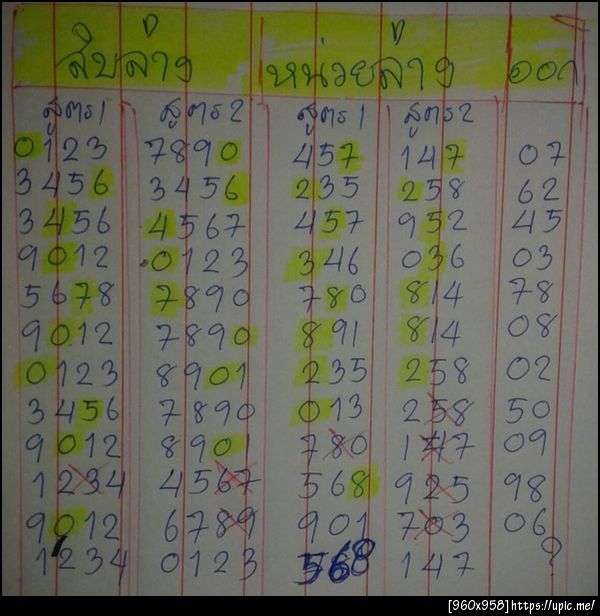 สิบล่าง หน่วยล่าง ออก
สูตร1 สูตร2 สูตร1 สูตร2
0123 7890 457 147 07
3456 3456 235 258 62
3456 4567 457 952 45
9012 0123 346 036 03
5678 7890 780 814 78
9012 7890 891 814 08
0123 8901 235 258 02
3456 7890 013 258 50
9012 8901 780 147 09
1234 4567 568 925 98
9012 6789 901 703 06
1234 0123 568 147 ?
[960x958]https://upic.me/